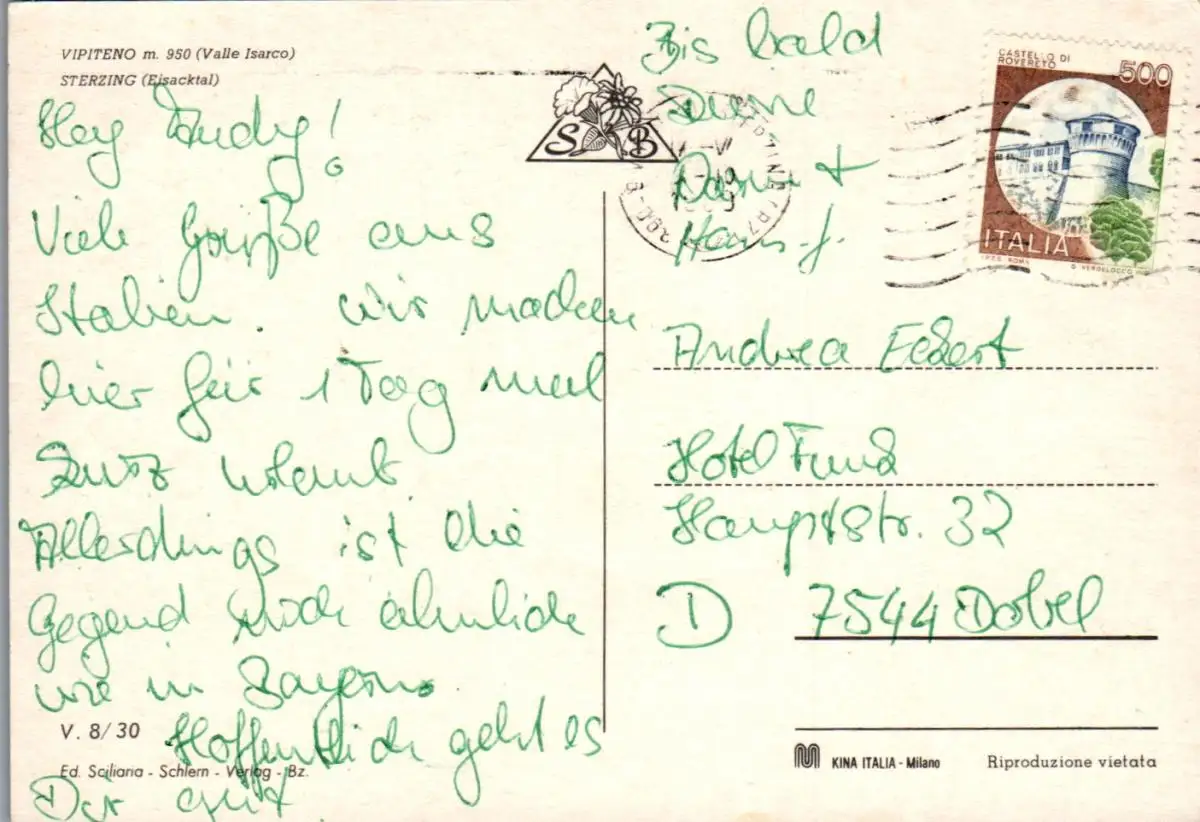 VIPITENO m. 950 (Valle Isarco)
STERZING (Eisacktal)
Hey Andy!
Viele Grüße aus
Italien. Wir machen
hier für 1 Tag mal
kurz Urlaub.
Allerdings ist die
Gegend noch ähnlich
wie in Bayern.
Hoffentlich geht es
Dir gut.
V. 8/30
Ed. Sciliaria - Schlern - Verlag - Bz.
Bis bald
Deine
+
Hans-J.
S B
CASTELLO DI
ROVERETO
500
ITALIA
I.P.Z.S. ROMA
G. VERDELOCCO
Andrea Eckert
Hotel Funk
Hauptstr. 32
D 7544 Dobel
KINA ITALIA - Milano
Riproduzione vietata